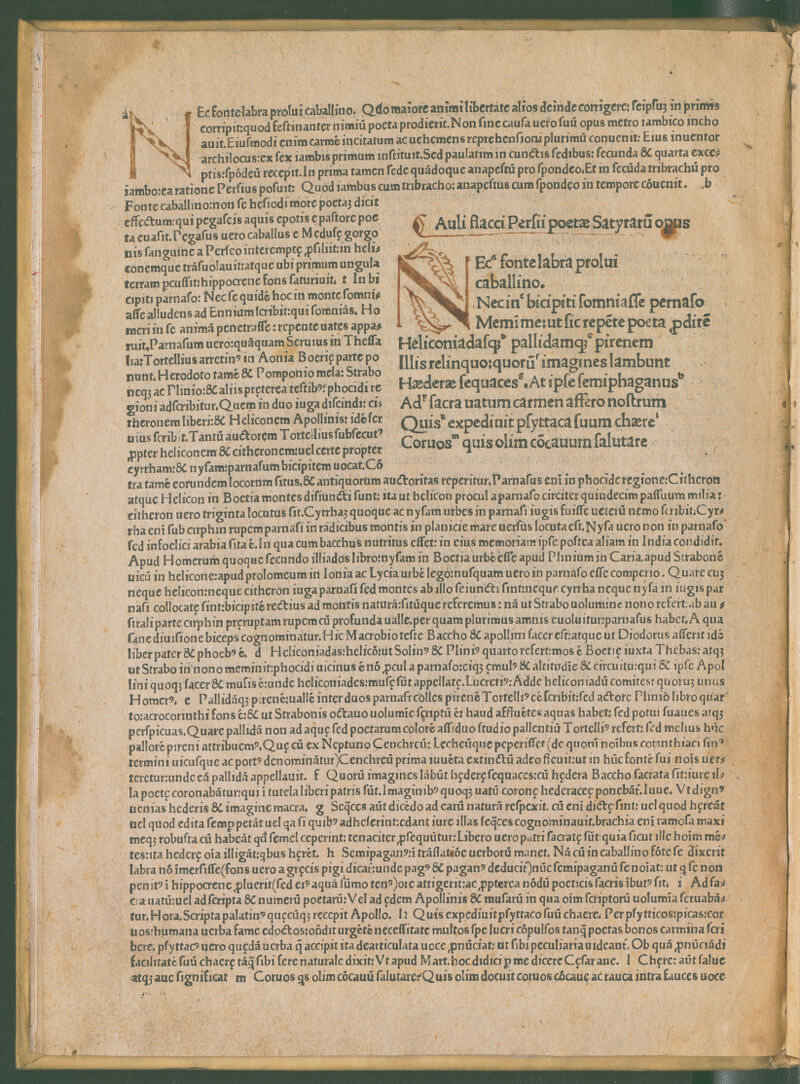 a NEc fonte labra prolui caballino. Qđo maiore animi libertate alios deinde corrigere: seipsuꝫ in primis
corripit:quod festinanter nimiū poeta prodierit.Non sine causa uero suū opus metro iambico incho
auit.Eiusmodi enim carmē incitatum ac uehemens reprehensioni plurimū conuenit: Eius inuentor
archilocus:ex sex iambis primum instituit.Sed paulatim in cunctis sedibus: secunda & quarta exce⸗
ptis:spōdeū recepit.In prima tamen sede quādoque anapestū pro spondeo.Et in secūda tribrachū pro
iambo:ea ratione Persius posuit: Quod iambus cum tribracho: anapestus cum spondęo in tempore cōuenit. .b
Fonte caballino:non se hesiodi more poetaꝫ dicit
effectum:qui pegaseis aquis epotis e pastore poe
ta euasit.Pegasus uero caballus e Medusę gorgo
nis sanguine a Perseo interemptę ꝓsiliit:in heli⸗
conemque trāsuolauit:atque ubi primum ungula
terram pcussit:hippocrene fons saturiuit. t In bi
cipiti parnaso: Nec se quidē hoc in monte somni⸗
asse alludens ad Ennium scribit:qui somniās, Ho
meri in se animā penetrasse : repente uates appa⸗
ruit.Parnasum uero:quāquam Seruius in Thessa
lia:Tortellius arretinꝰ in Aonia Boetię parte po
nunt. Herodoto tamē & Pomponio mela: Strabo
neqꝫ ac Plinio:& aliis pręterea testibꝰ:phocidi re
gioni adscribitur.Quem in duo iuga discindi: ci⸗
theronem liberi:& Heliconem Apollinis: idē ser
uius scribit.Tantū auctorem Tortellius subsecutꝰ
ꝓpter heliconem & citheronem:uel certe propter
cyrrham:& nysam:parnasum bicipitem uocat.Cō
Auli flacci Persii poetæ Satyrarū opus
NEcᵃ fonte labra prolui
caballino.
Nec inᶜ bicipiti somniasse pernaso
Memi me:ut sic repēte poeta ꝓdirē
Heliconiadasqꝫᵈ pallidamqꝫᵉ pirenem
Illis relinquo:quorūᶠ imagines lambunt
Hæderæ sequacesᵍ.At ipse semiphaganusʰ
Adʳ sacra uatum carmen affero nostrum
Quisᵏ expediuit psyttaca suum chæreˡ
Coruosᵐ quis olim cōcauum salutare
tra tamē eorundem locorum situs,& antiquorum auctoritas reperitur.Parnasus eni in phocide regione:Citheron
atque Helicon in Boetia montes disiuncti sunt: ita ut helicon procul a parnaso circiter quindecim passuum milia :
citheron uero triginta locutus sit.Cyrrhaꝫ quoque ac nysam urbes in parnasi iugis fuisse ueterū nemo scribit.Cyr⸗
rha eni sub cirphin rupem parnasi in radicibus montis in planicie mare uersus locuta est. Nysa uero non in parnaso
sed infoelici arabia sita ē.In qua cum bacchus nutritus esset: in eius memoriam ipse postea aliam in India condidit.
Apud Homerum quoque secundo illiados libro:nysam in Boetia urbē esse apud Plinium in Caria.apud Strabonē
uicū in helicone:apud prolomeum in Ionia ac Lycia urbē lego:nusquam uero in parnaso esse comperio . Quare cuꝫ
neque helicon:neque citheron iuga parnasi sed montes ab illo seiuncti sint:neque cyrrha neque nysa in iugis par
nasi collocatę sint:bicipitē rectius ad montis naturā:sitūque referemus : nā ut Strabo uolumine nono refert:ab au⸗
strali parte cirphin pręruptam rupem cū profunda ualle.per quam plurimus amnis euoluitur:parnasus habet. A qua
sane diuisione biceps cognominatur.Hic Macrobio teste Baccho & apollini sacer est:atque ut Diodorus asserit idē
liber pater & phoebꝰ ē. d Heliconiadas:helicō:ut Solinꝰ & Pliniꝰ quarto refert:mos ē Boetię iuxta Thebas: atqꝫ
ut Strabo in nono meminit:phocidi uicinus ē nō ꝓcul a parnaso:eiqꝫ ęmulꝰ & altitudie & circuitu:qui & ipse Apol
lini quoqꝫ sacer & musis ē:unde heliconiades:musę sūt appellatę.Lucretiꝰ:Adde heliconiadū comites: quoruꝫ unus
Homerꝰ. e Pallidāqꝫ pirenē:uallē inter duos parnasi colles pirenē Tortelliꝰ cē scribit:sed actore Plinio libro quar
to:acrocorinthi fons ē:& ut Strabonis octauo uolumie scriptū ē: haud affluētes aquas habet: sed potui suaues atqꝫ
perspicuas.Quare pallidā non ad aquę sed poetarum colorē assiduo studio pallentiū Tortelliꝰ refert: sed melius hūc
pallorē pireni attribuemꝰ.Quę cū ex Neptuno Cenchreū: Lecheūque peperisset (de quorū noibus corinthiaci sinꝰ
termini uicusque ac portꝰ denominātur)Cenchreū prima iuuēta extinctū adeo fleuit:ut in hūc fontē sui nois uer⸗
teretur:unde eā pallidā appellauit. f Quorū imagines lābūt hęderę sequaces:cū hędera Baccho sacrata sit:iure il⸗
la poetę coronabātur:qui i tutela liberi patris sūt.Imaginibꝰ quoqꝫ uatū coronę hederaceę ponebāt.Iuue. Vt dignꝰ
uenias hederis & imagine macra. g Seqces aūt dicēdo ad earū naturā respexit. cū eni dictę sint: uel quod hęreāt
uel quod edita semp petāt uel qa si quibꝰ adheserint:cedant iure illas seqces cognominauit.brachia eni ramosa maxi
meqꝫ robusta cū habeāt qđ semel ceperint: tenaciter ꝓsequūtur:Libero uero patri sacratę sūt quia sicut ille hoim mē⸗
tes:ita hederę oia illigāt:qbus hęrēt. h Semipaganꝰ:i trāslatiōe uerborū manet. Nā cū in caballino fōte se dixerit
labra nō imersisse(fons uero a gręcis pigi dicat:unde pagꝰ & paganꝰ deducit)nūc semipaganū se noiat: ut q se non
penitꝰ i hippocrene ꝓluerit(sed eiꝰ aquā sūmo tenꝰ)ore attigerit:ac ꝓpterea nōdū poeticis sacris ibutꝰ sit. i Ad sa⸗
cra uatū:uel ad scripta & numerū poetarū:Vel ad ędem Apollinis & musarū in qua oim scriptorū uolumia seruabā⸗
tur. Hora.Scripta palatinꝰ quęcūqꝫ recepit Apollo. l: Quis expediuit psyttaco suū chaere. Per psytticos:picas:cor
uos:humana uerba fame edoctos:ondit urgētē necessitatē multos spe lucri cōpulsos tanꝗ poetas bonos carmina scri
bere. psyttacꝰ uero quędā uerba q̄ accipit ita dearticulata uoce ꝓnūciat: ut sibi peculiaria uideant. Ob quā ꝓnūciādi
facilitatē suū chaerę tāꝗ sibi fere naturale dixit:Vt apud Mart.hoc didici p me dicere Cęsar aue. l Chęre: aūt salue
atqꝫ aue significat m Coruos qs olim cōcauū salutare:Quis olim docuit coruos cōcauę ac rauca intra fauces uoce